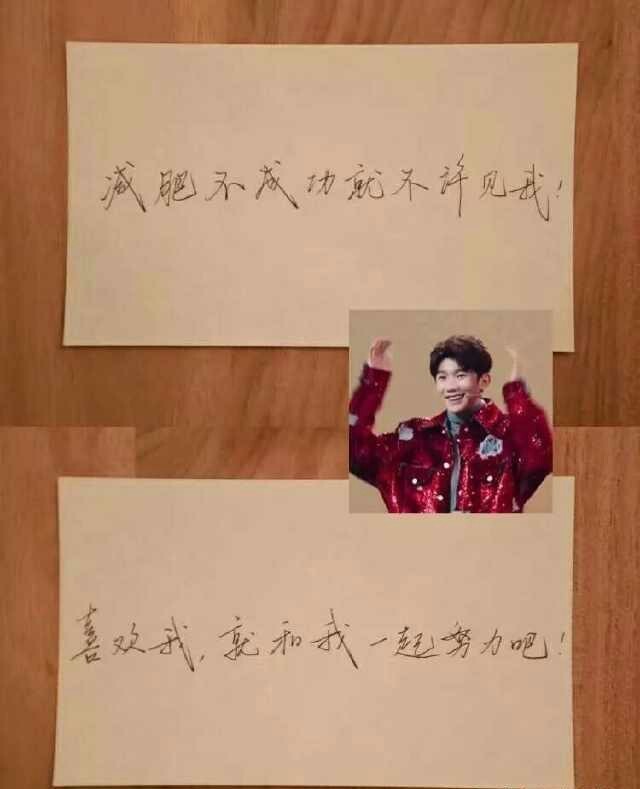 减肥不成功就不许见我！
喜欢我，就和我一起努力吧！